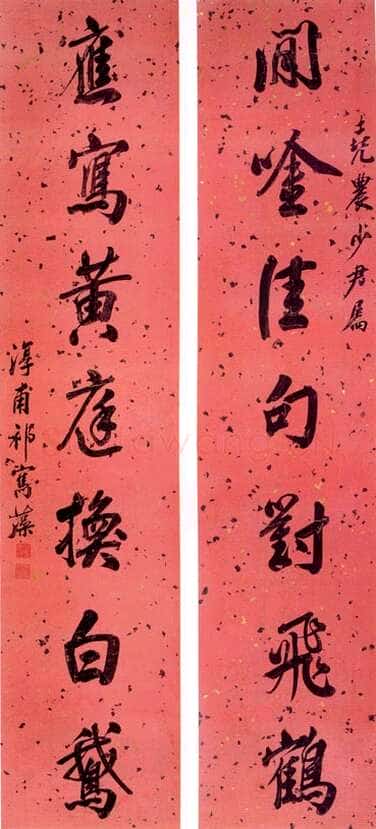 堯農少君屬
閒唫佳句對飛鶴
應寫黃庭換白鵞
淳甫祁寯藻